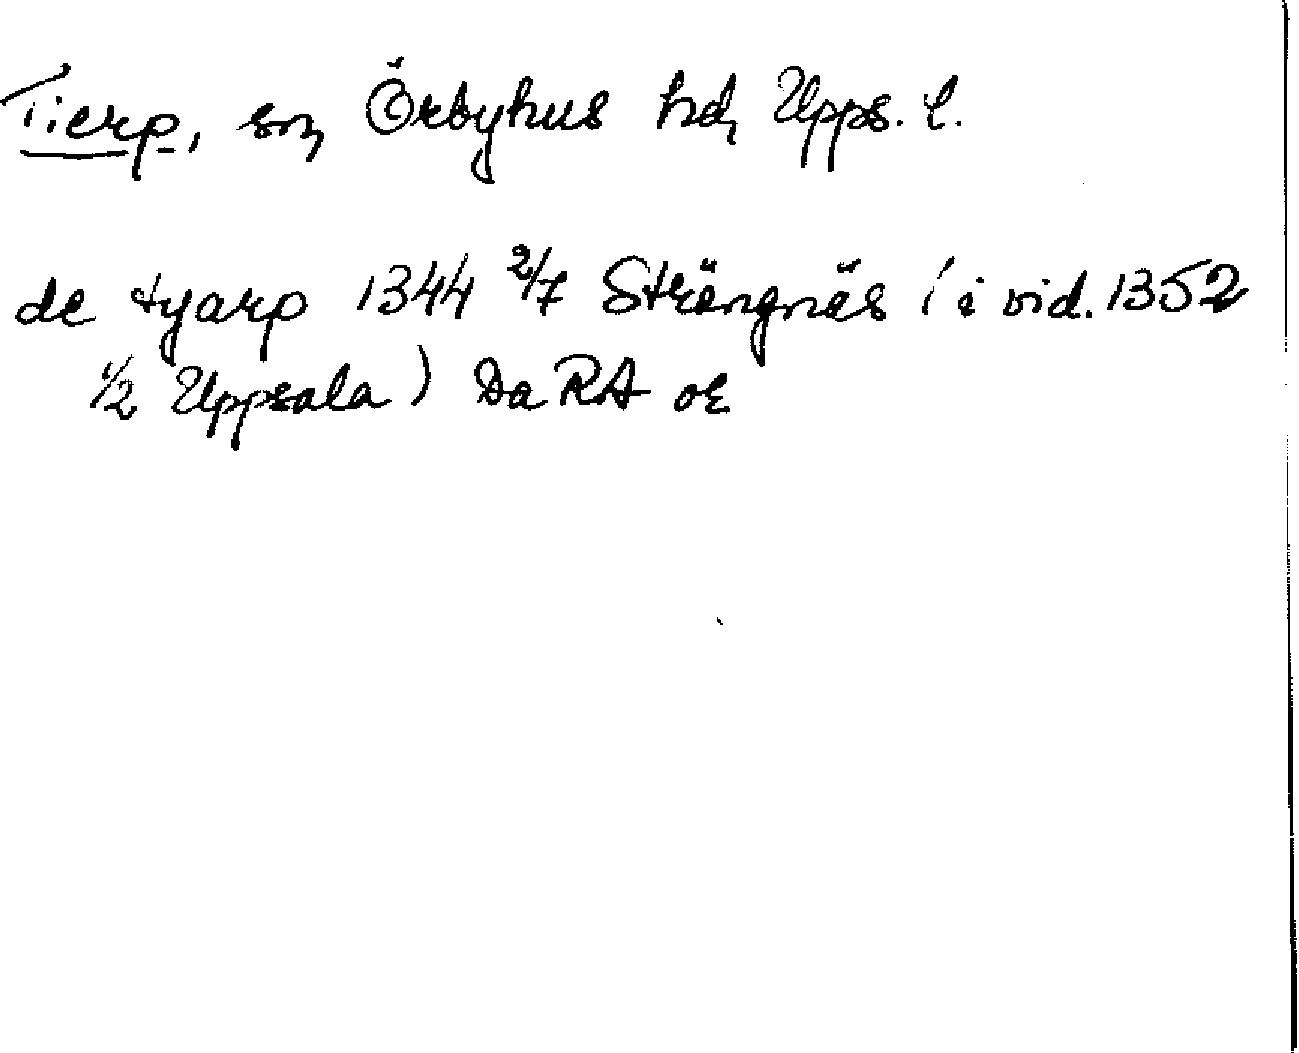 Tierp, sn, Örbyhus hd, Upps. l.
de tyarp 1344 2/7 Strängnäs (i vid. 1352
1/2 Uppsala) Da RA or